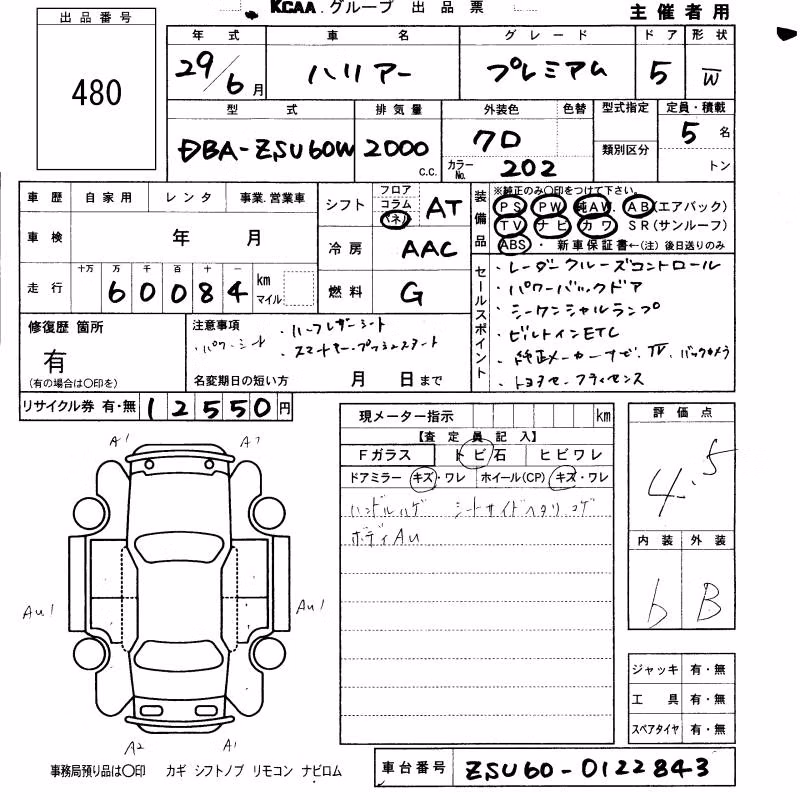 KCAA.グループ 出品票
主催者用
出品番号
480
年式 車名 グレード ドア 形状
29/6月 ハリアー プレミアム 5 W
型式 排気量 外装色 色替 型式指定 定員・積載
DBA-ZSU60W 2000 c.c. クロ 類別区分 5名
カラーNo. 202 トン
車歴 自家用 レンタ 事業.営業車
車検 年 月
走行 十万 万 千 百 十 一
60084 km マイル
シフト フロア コラム パネ AT
冷房 AAC
燃料 G
装備品
※純正のみ○印をつけて下さい。
PS PW 純AW. AB(エアバック)
TV ナビ カワ SR(サンルーフ)
ABS ・ 新車保証書←(注) 後日送りのみ
セールスポイント
・レーダークルーズコントロール
・パワーバックドア
・シーケンシャルランプ
・ビルトインETC
・純正メーカーナビ. TV. バックカメラ
・トヨタセーフティセンス
修復歴 箇所
有
(有の場合は○印を)
注意事項 ・ハーフレザーシート
・パワーシート ・スマートキー・プッシュスタート
名変期日の短い方 月 日まで
リサイクル券 有・無 12550円
現メーター指示 km
【査定員記入】
Fガラス トビ石 ヒビワレ
ドアミラー キズ・ワレ ホイール(CP) キズ・ワレ
ハンドルハゲ シートサイドヘタリ.コゲ
ボディAU
評価点
4.5
内装 外装
b B
ジャッキ 有・無
工具 有・無
スペアタイヤ 有・無
A1 A1
AU1 AU1
A2 A1
事務局預り品は○印 カギ シフトノブ リモコン ナビロム
車台番号 ZSU60-0122843